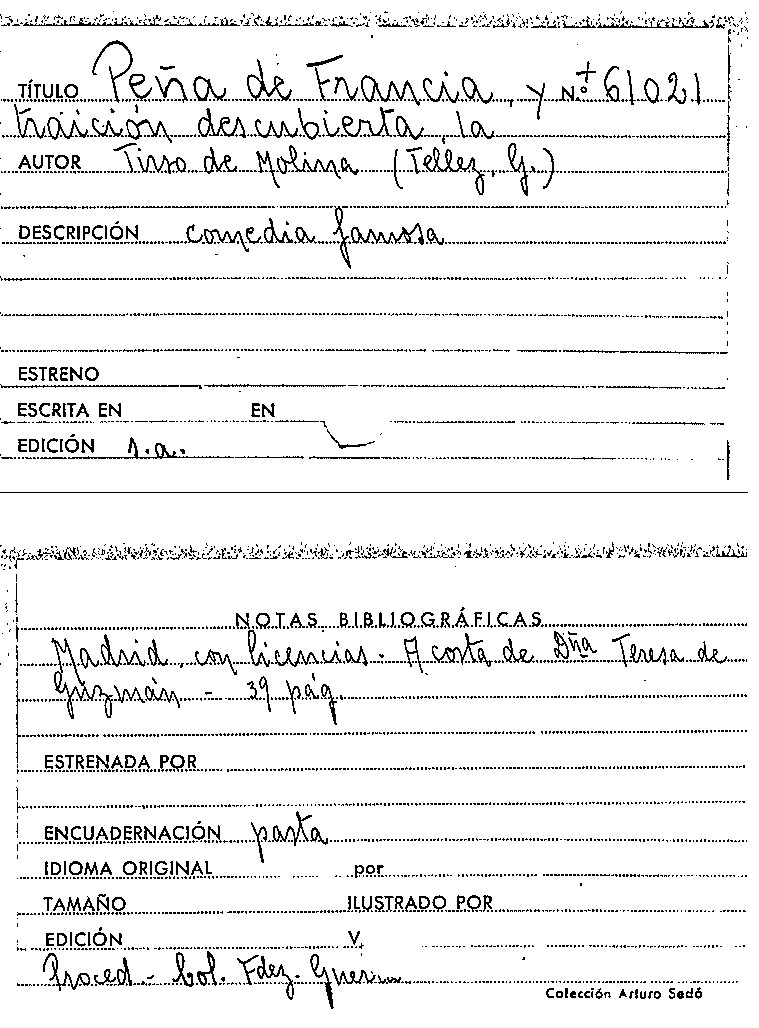 TÍTULO Peña de Francia, y N.º + 61021
traición descubierta, la
AUTOR Tirso de Molina (Tellez, G.)
DESCRIPCIÓN comedia famosa
ESTRENO
ESCRITA EN EN
EDICIÓN s.a.
NOTAS BIBLIOGRÁFICAS
Madrid, con licencias. A costa de Dña Teresa de
Guzmán - 39 pág.
ESTRENADA POR
ENCUADERNACIÓN pasta
IDIOMA ORIGINAL por
TAMAÑO ILUSTRADO POR
EDICIÓN V.
Proced.- Col. Fdez.
Colección Arturo Sedó